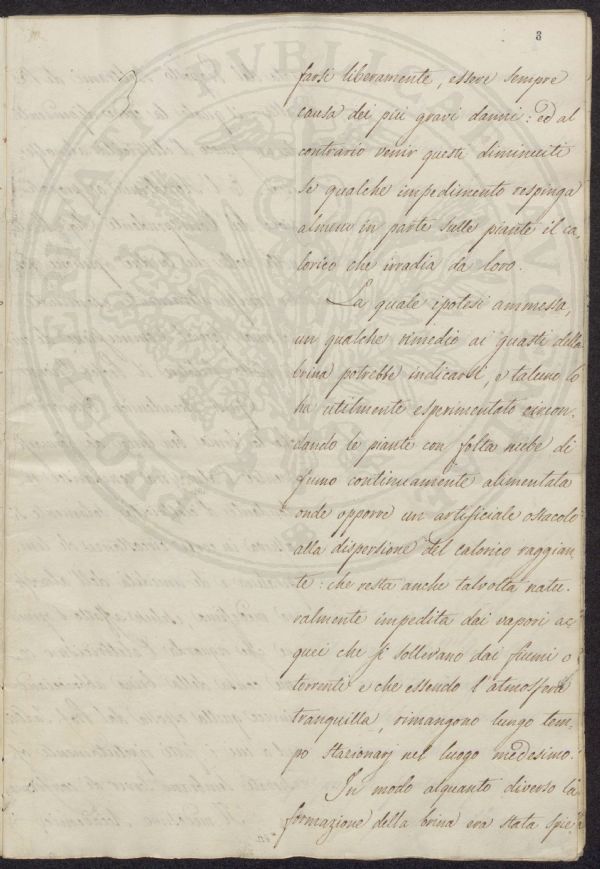 3
farsi liberamente, essere sempre
causa dei più gravi danni: ed al
contrario venir questi diminuiti
se qualche impedimento respinga
almeno in parte sulle piante il ca,
lorico che irradia da loro.
La quale ipotesi ammessa,
un qualche rimedio ai guasti della
brina potrebbe indicarsi, e taluno lo
ha utilmente esperimentato circon,
dando le piante con folta nube di
fumo continuamente alimentata
onde opporre un artificiale ostacolo
alla dispersione del calorico raggian,
te: che resta anche talvolta natu,
ralmente impedita dai vapori ac,
quei che si sollevano dai fiumi o
torrenti e che essendo l'atmosfera
tranquilla, rimangono lungo tem,
po stazionarj nel luogo medesimo.
In modo alquanto diverso la
formazione della brina era stata spie,